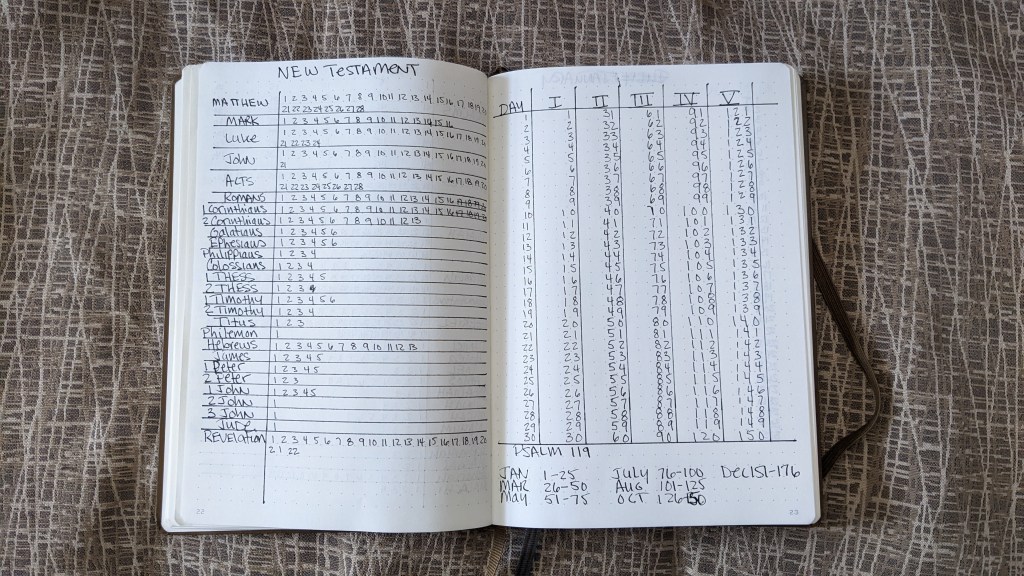 NEW TESTAMENT
MATTHEW 1 2 3 4 5 6 7 8 9 10 11 12 13 14 15 16 17 18 19 20
21 22 23 24 25 26 27 28
MARK 1 2 3 4 5 6 7 8 9 10 11 12 13 14 15 16
Luke 1 2 3 4 5 6 7 8 9 10 11 12 13 14 15 16 17 18 19 20
21 22 23 24
John 1 2 3 4 5 6 7 8 9 10 11 12 13 14 15 16 17 18 19 20
21
ACTS 1 2 3 4 5 6 7 8 9 10 11 12 13 14 15 16 17 18 19 20
21 22 23 24 25 26 27 28
ROMANS 1 2 3 4 5 6 7 8 9 10 11 12 13 14 15 16
1 Corinthians 1 2 3 4 5 6 7 8 9 10 11 12 13 14 15 16
2 Corinthians 1 2 3 4 5 6 7 8 9 10 11 12 13
Galatians 1 2 3 4 5 6
Ephesians 1 2 3 4 5 6
Philippians 1 2 3 4
Colossians 1 2 3 4
1 THESS 1 2 3 4 5
2 THESS 1 2 3
1 Timothy 1 2 3 4 5 6
2 Timothy 1 2 3 4
Titus 1 2 3
Philemon 1
Hebrews 1 2 3 4 5 6 7 8 9 10 11 12 13
James 1 2 3 4 5
1 Peter 1 2 3 4 5
2 Peter 1 2 3
1 John 1 2 3 4 5
2 John 1
3 John 1
Jude 1
REVELATION 1 2 3 4 5 6 7 8 9 10 11 12 13 14 15 16 17 18 19 20
21 22
22
DAY I II III IV V
1 1 31 61 91 121
2 2 32 62 92 122
3 3 33 63 93 123
4 4 34 64 94 124
5 5 35 65 95 125
6 6 36 66 96 126
7 7 37 67 97 127
8 8 38 68 98 128
9 9 39 69 99 129
10 10 40 70 100 130
11 11 41 71 101 131
12 12 42 72 102 132
13 13 43 73 103 133
14 14 44 74 104 134
15 15 45 75 105 135
16 16 46 76 106 136
17 17 47 77 107 137
18 18 48 78 108 138
19 19 49 79 109 139
20 20 50 80 110 140
21 21 51 81 111 141
22 22 52 82 112 142
23 23 53 83 113 143
24 24 54 84 114 144
25 25 55 85 115 145
26 26 56 86 116 146
27 27 57 87 117 147
28 28 58 88 118 148
29 29 59 89 119 149
30 30 60 90 120 150
PSALM 119
JAN 1-25 JULY 76-100 DEC 151-176
MAR 26-50 AUG 101-125
MAY 51-75 OCT 126-150
23